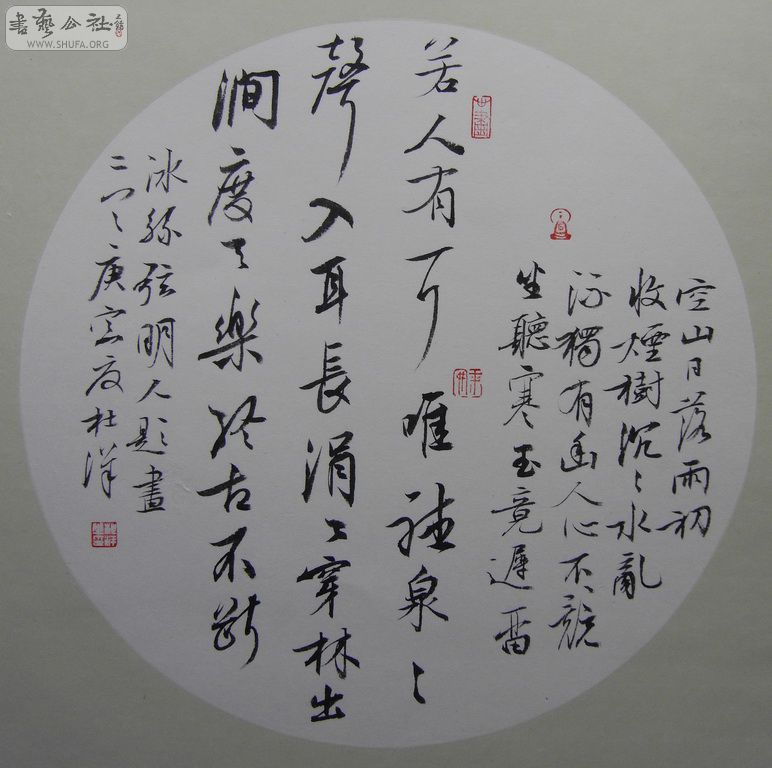 空山日落雨初
收煙樹沉〻水亂
流獨有幽人心不競
坐聽寒玉竟遲留
若人有耳唯聽泉〻
聲入耳長涓〻穿林出
澗度天樂終古不斷
冰絲弦明人題畫
庚寅夏杜洋
書藝公社
WWW.SHUFA.ORG